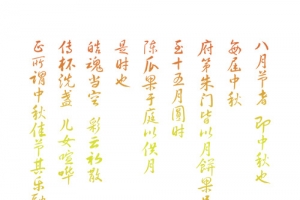 八月节者 即中秋也
每届中秋
府第朱门皆以月饼果品
至十五月圆时
陈瓜果于庭以供月
是时也
皓魂当空 彩云初散
传杯洗盏 儿女喧哗
正所谓中秋佳节其乐